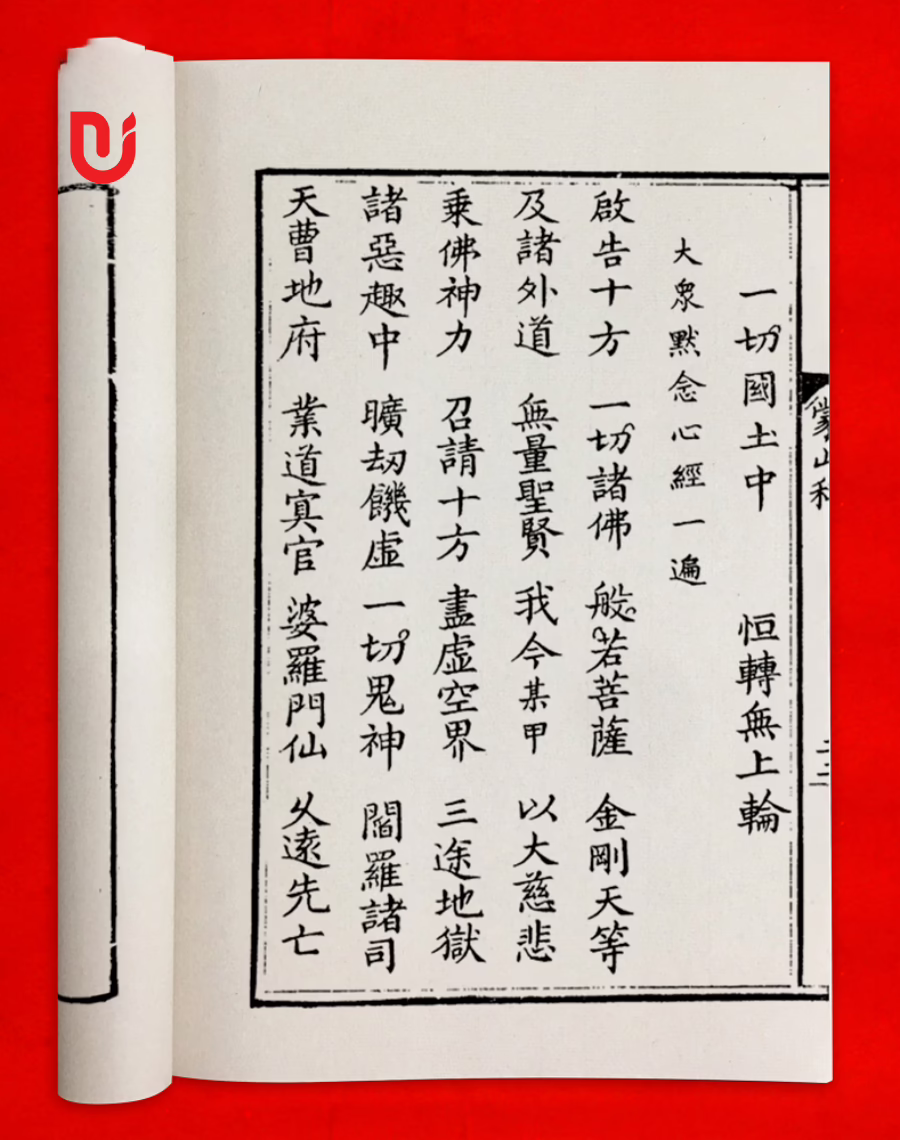 一切國土中　恒轉無上輪
大衆默念心經一遍
啟告十方　一切諸佛　般若菩薩　金剛天等
及諸外道　無量聖賢　我今某甲　以大慈悲
乗佛神力　召請十方　盡虛空界　三途地獄
諸惡趣中　曠劫饑虛　一切鬼神　閻羅諸司
天曹地府　業道冥官　婆羅門仙　久遠先亡